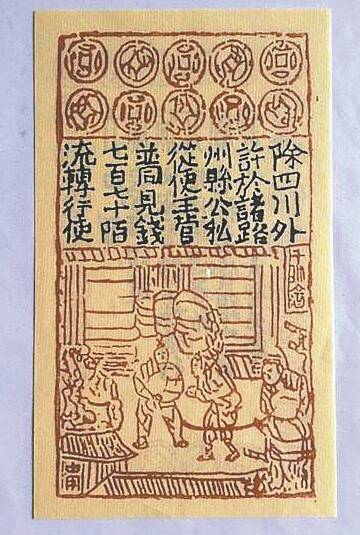 除四川外
許於諸路
州縣公私
從便主管
並同見錢
七百七十陌
流轉行使
千斯仓